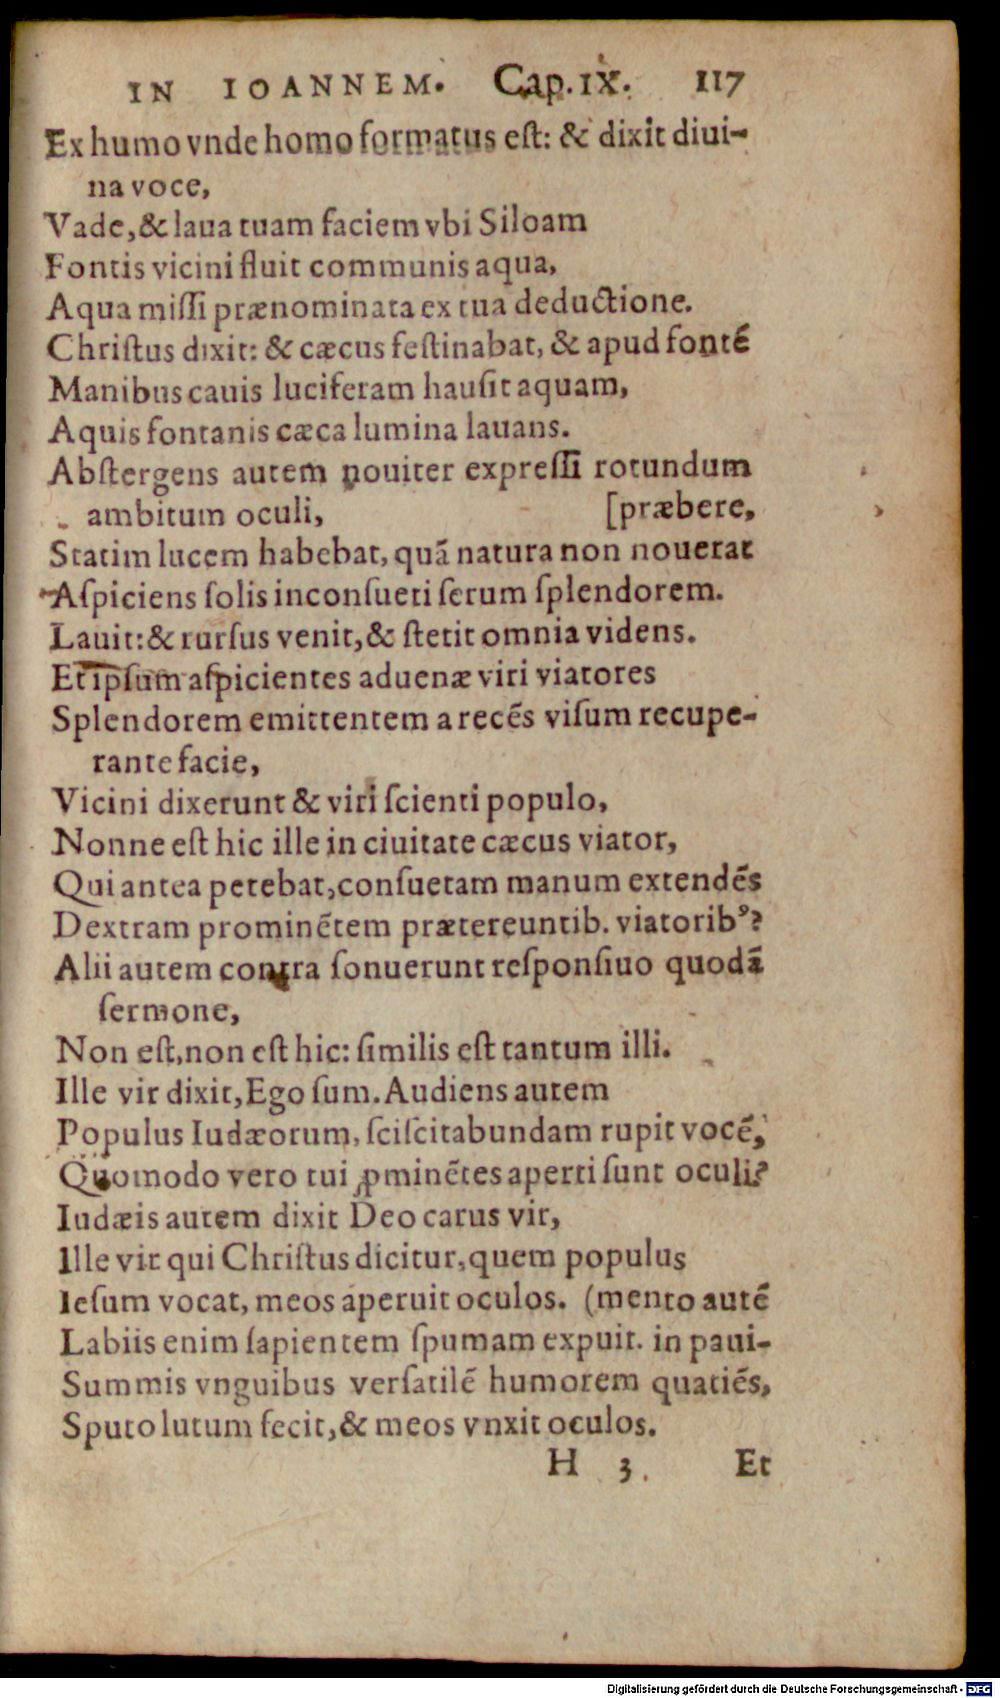 IN IOANNEM. Cap. IX. 117
Ex humo vnde homo formatus eſt: & dixit diui-
na voce,
Vade, & laua tuam faciem vbi Siloam
Fontis vicini fluit communis aqua,
Aqua miſſi prænominata ex tua deductione.
Chriſtus dixit: & cæcus feſtinabat, & apud fontẽ
Manibus cauis luciferam hauſit aquam,
Aquis fontanis cæca lumina lauans.
Abſtergens autem nouiter expreſſi rotundum
ambitum oculi, [præbere,
Statim lucem habebat, quã natura non nouerat
Aſpiciens ſolis inconſueti ſerum ſplendorem.
Lauit: & rurſus venit, & ſtetit omnia videns.
Et ipſum aſpicientes aduenæ viri viatores
Splendorem emittentem a recẽs viſum recupe-
rante facie,
Vicini dixerunt & viri ſcienti populo,
Nonne eſt hic ille in ciuitate cæcus viator,
Qui antea petebat, conſuetam manum extendẽs
Dextram prominẽtem prætereuntib. viatoribꝰ?
Alii autem contra ſonuerunt reſponſiuo quodã
ſermone,
Non eſt, non eſt hic: ſimilis eſt tantum illi.
Ille vir dixit, Ego ſum. Audiens autem
Populus Iudæorum, ſciſcitabundam rupit vocẽ,
Quomodo vero tui ꝓminẽtes aperti ſunt oculi?
Iudæis autem dixit Deo carus vir,
Ille vir qui Chriſtus dicitur, quem populus
Ieſum vocat, meos aperuit oculos. (mento autẽ
Labiis enim ſapientem ſpumam expuit. in paui-
Summis vnguibus verſatilẽ humorem quatiẽs,
Sputo lutum fecit, & meos vnxit oculos.
H 3. Et
Digitalisierung gefördert durch die Deutsche Forschungsgemeinschaft - DFG